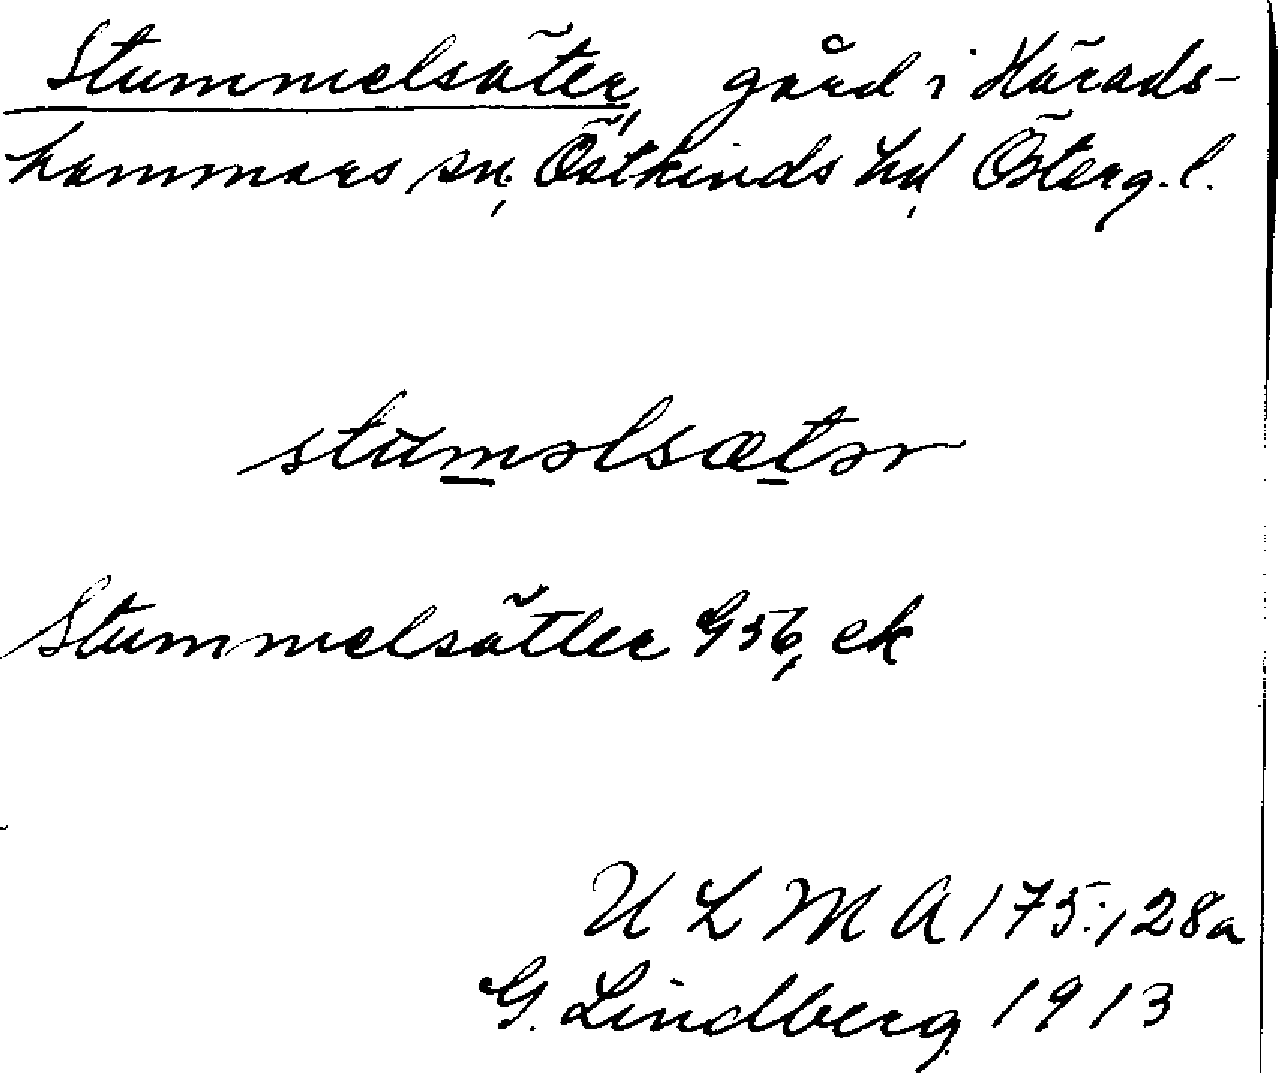 Stummelsäter, gård i Härads-
hammars sn, Östkinds hd, Österg. l.
stuməlsætər
Stummelsätter G 56, ek
U L M A 175:128a
G. Lindberg 1913